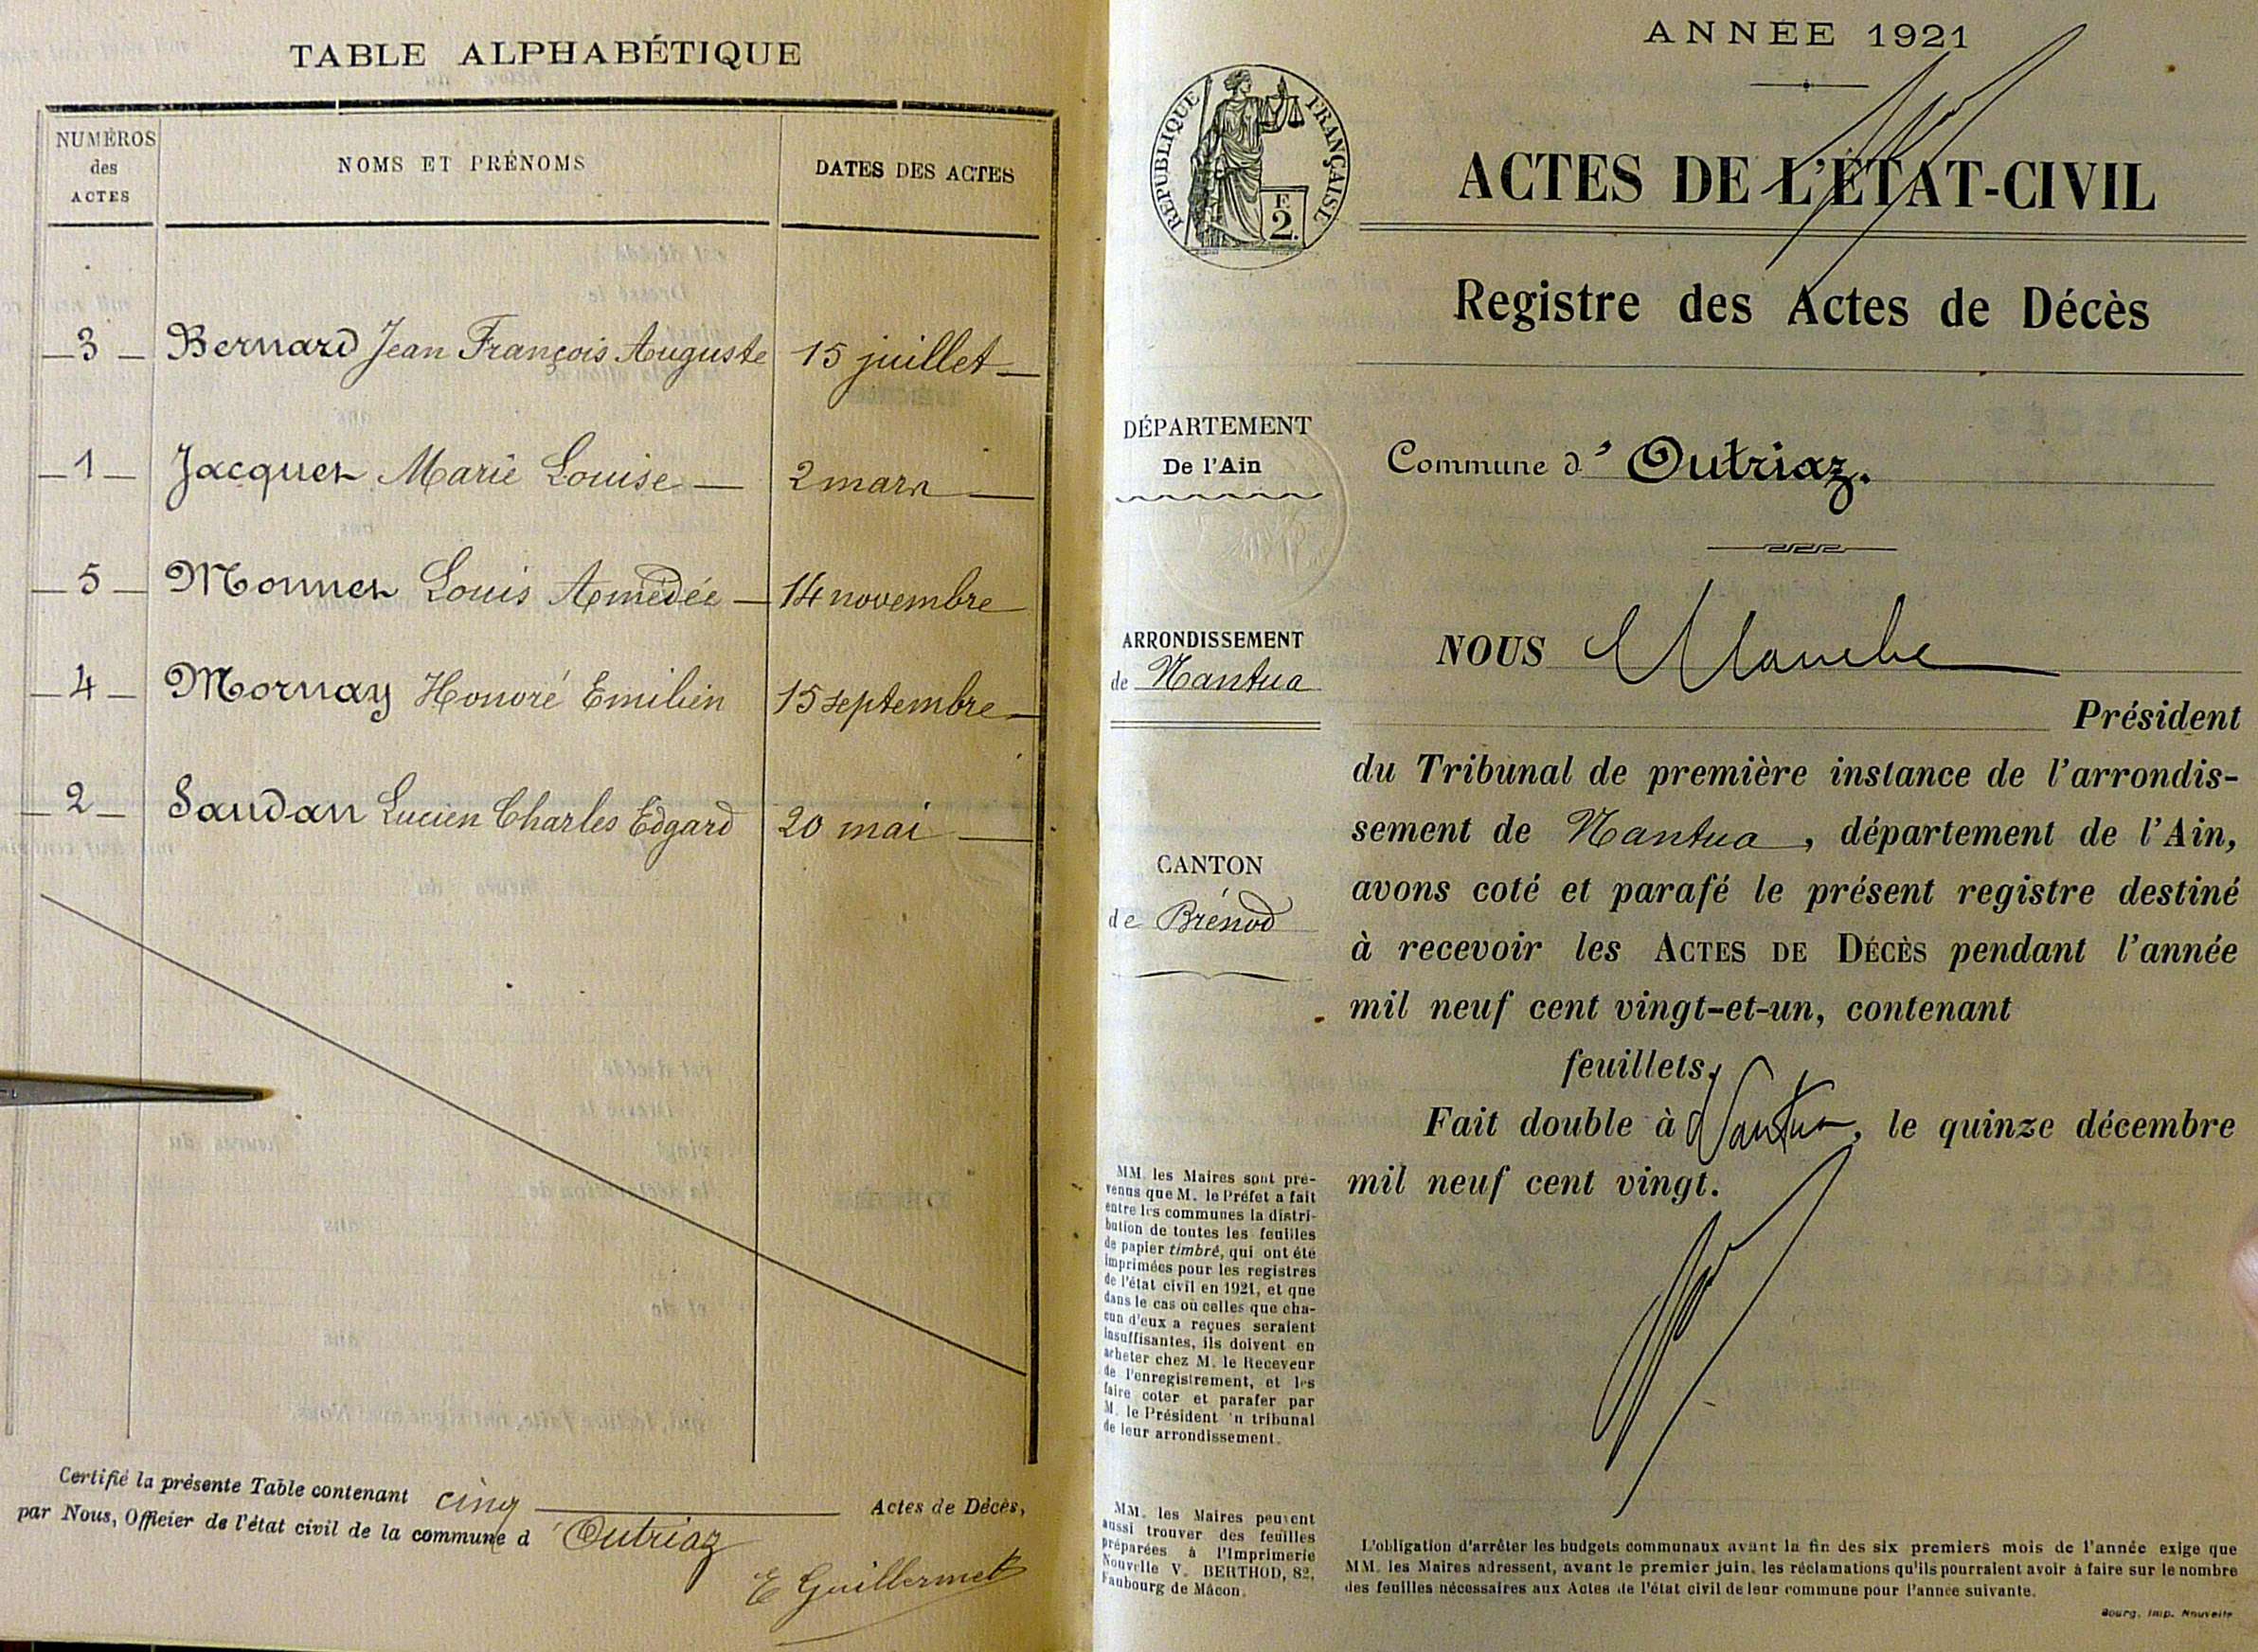 TABLE ALPHABÉTIQUE
NUMÉROS
des
ACTES
NOMS ET PRÉNOMS
DATES DES ACTES
3 Bernard Jean François Auguste 15 juillet
1 Jacquet Marie Louise 2 mars
5 Monnet Louis Amédée 14 novembre
4 Mornay Honoré Emilien 15 septembre
2 Saudan Lucien Charles Edgard 20 mai
Certifié la présente Table contenant cinq Actes de Décès,
par Nous, Officier de l'état civil de la commune d'Outriaz
E Guillermet
ANNÉE 1921
RÉPUBLIQUE FRANÇAISE
E
2.
ACTES DE L'ÉTAT-CIVIL
Registre des Actes de Décès
DÉPARTEMENT
De l'Ain
Commune d'Outriaz.
ARRONDISSEMENT
de Nantua
CANTON
de Brénod
NOUS
Président
du Tribunal de première instance de l'arrondis-
sement de Nantua, département de l'Ain,
avons coté et parafé le présent registre destiné
à recevoir les ACTES DE DÉCÈS pendant l'année
mil neuf cent vingt-et-un, contenant
feuillets.
Fait double à Nantua, le quinze décembre
mil neuf cent vingt.
MM. les Maires sont pré-
venus que M. le Préfet a fait
entre les communes la distri-
bution de toutes les feuilles
de papier timbré, qui ont été
imprimées pour les registres
de l'état civil en 1921, et que
dans le cas où celles que cha-
cun d'eux a reçues seraient
insuffisantes, ils doivent en
acheter chez M. le Receveur
de l'enregistrement, et les
faire coter et parafer par
M. le Président du tribunal
de leur arrondissement.
MM. les Maires peuvent
aussi trouver des feuilles
préparées à l'Imprimerie
Nouvelle V. BERTHOD, 82,
Faubourg de Mâcon.
L'obligation d'arrêter les budgets communaux avant la fin des six premiers mois de l'année exige que
MM. les Maires adressent, avant le premier juin, les réclamations qu'ils pourraient avoir à faire sur le nombre
des feuilles nécessaires aux Actes de l'état civil de leur commune pour l'année suivante.
Bourg, Imp. Nouvelle